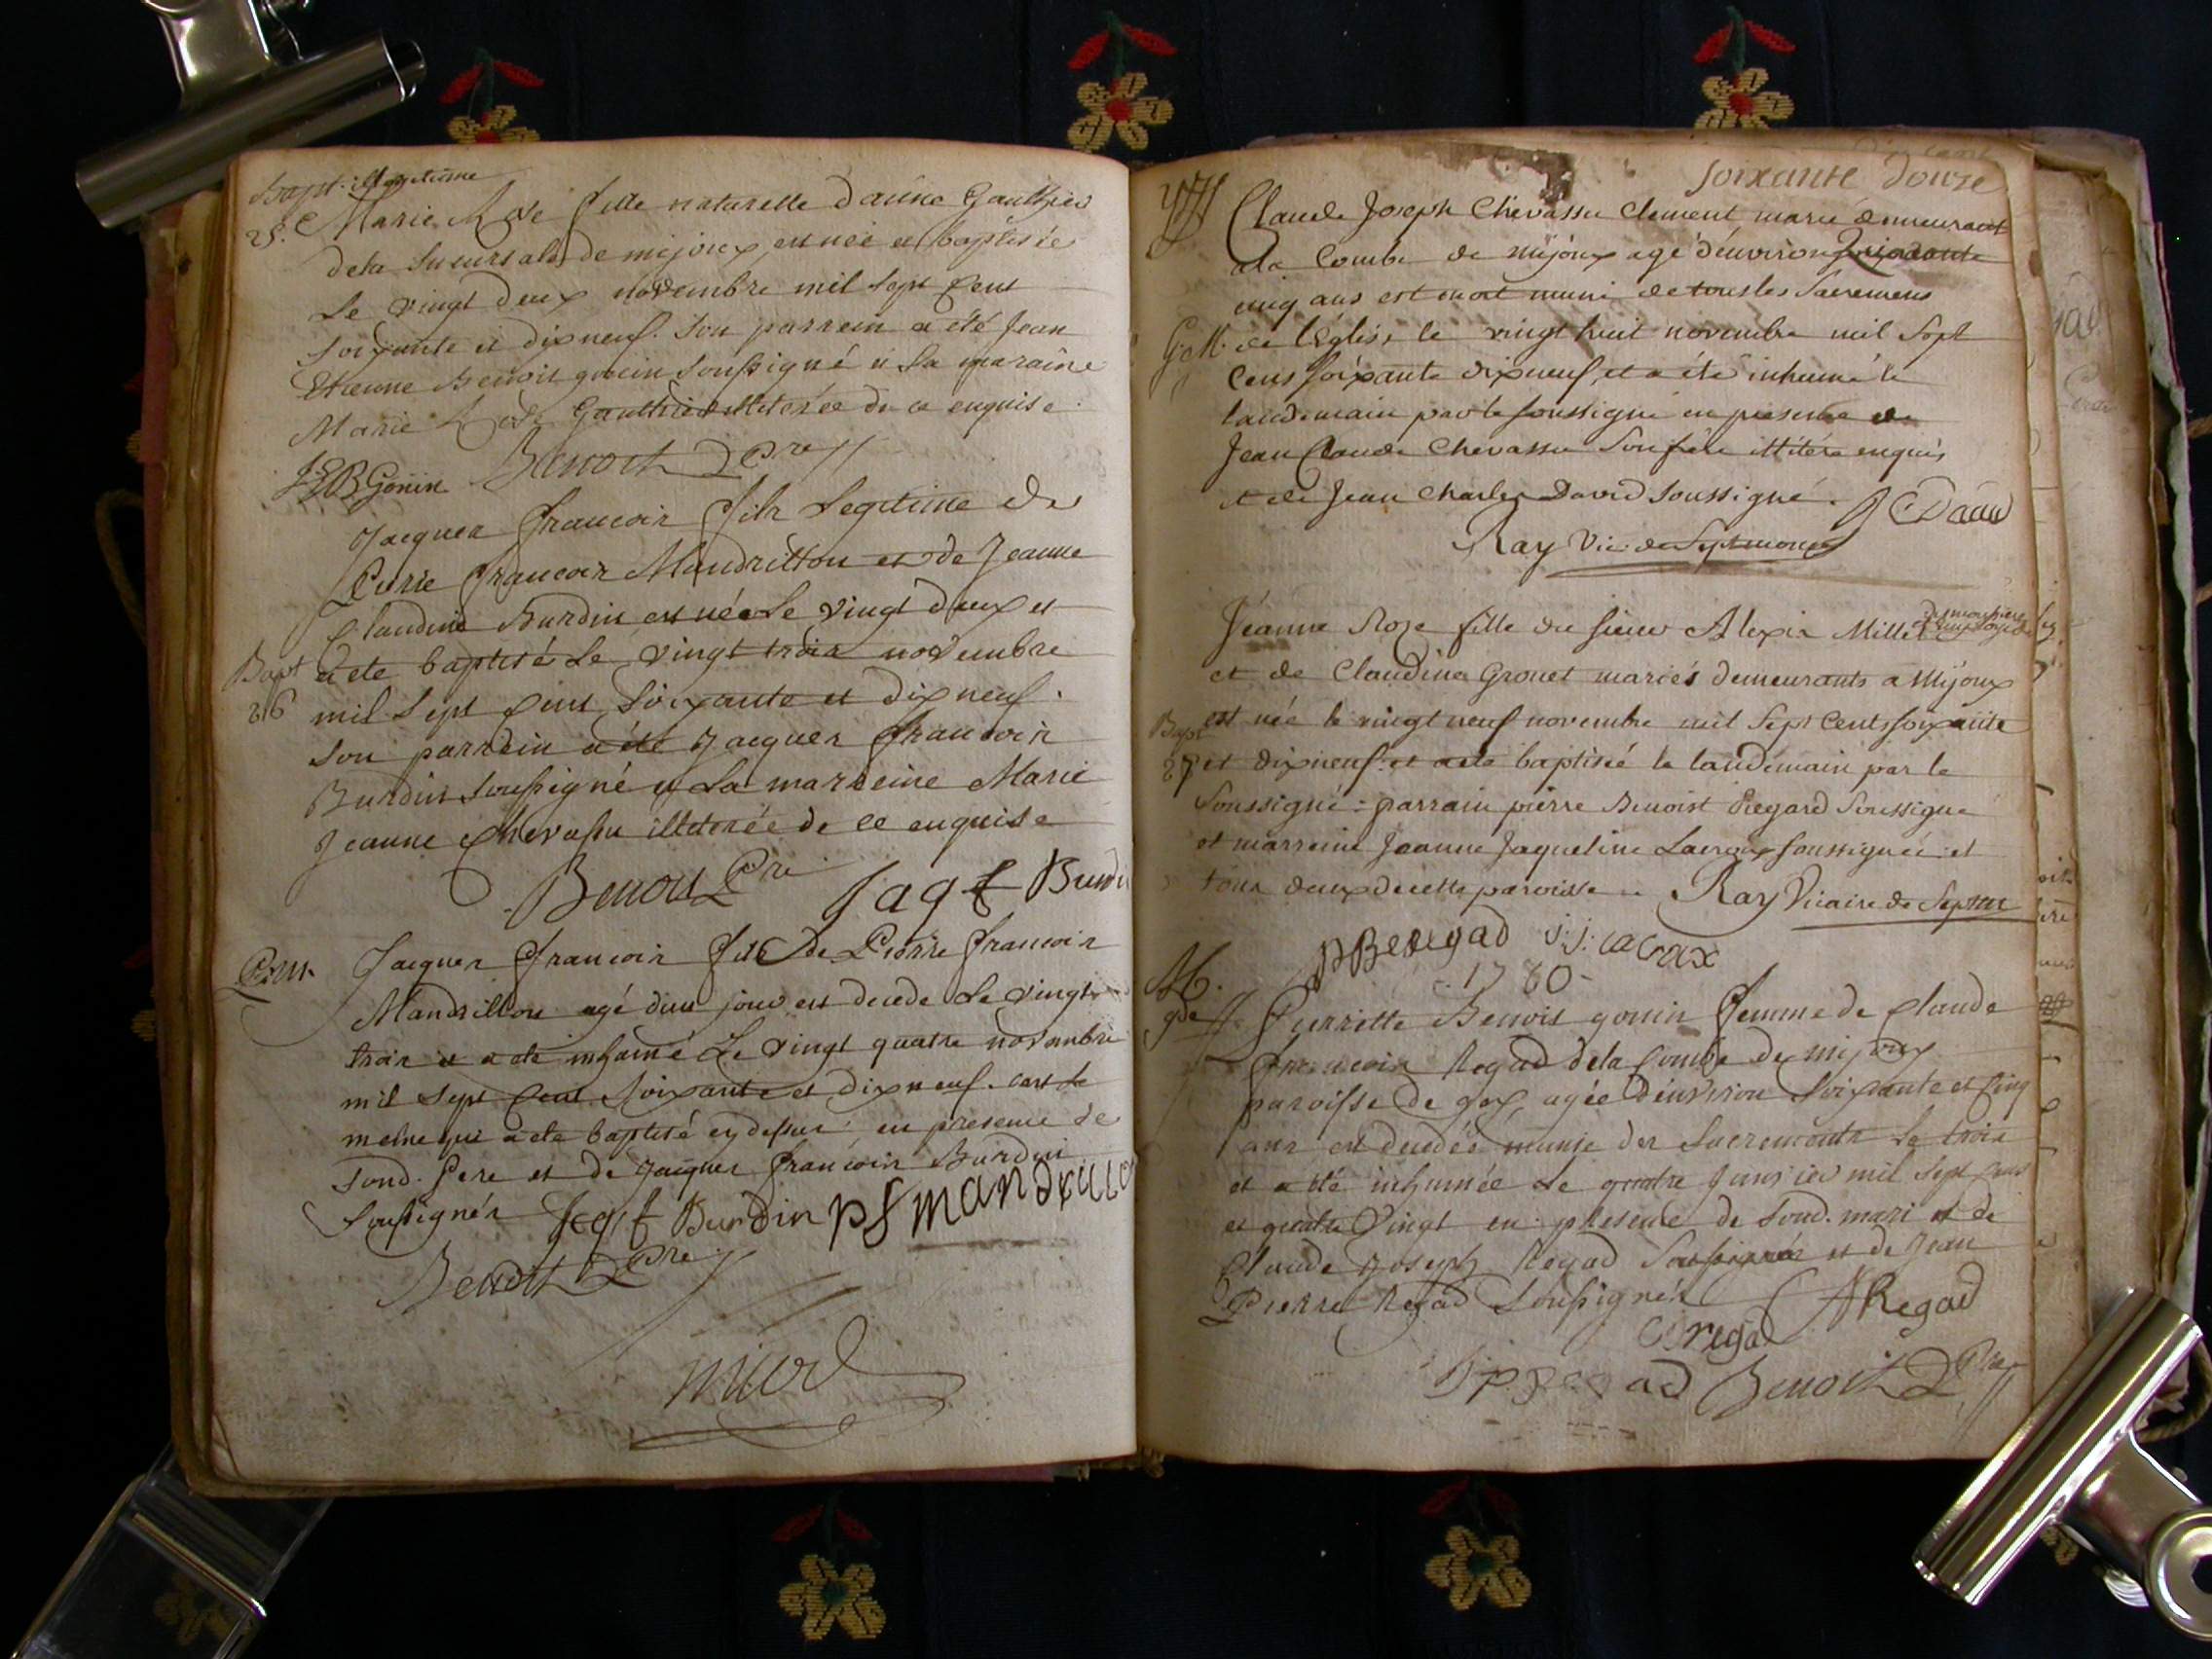 Bapt. illegitime
25. Marie Rose fille naturelle d'anne Gauthier
dela sucursale de mijoux, est née et baptisée
Le vingt deux novembre mil sept Cent
soixante et dixneuf. son parrein a été Jean
Etienne Benoit gonin soussigné et La maraine
Marie Rose Gauthier illiterée de ce enquise
JEB. Gonin Benoit Pre
Jacques francois fils Legitime de
Pierre francois Mandrillon et de Jeanne
Claudine Burdin est née Le vingt deux et
Bapt a ete baptisé Le vingt trois novembre
26 mil sept Cent soixante et dixneuf.
son parrein a été Jacques francois
Burdin soussigné et La marreine Marie
Jeanne Chevassu illiterée de ce enquise
Benoit Pre Jaq f Burdin
Jacques francois fils de Pierre francois
Mandrillon agé d'un jour est decede Le vingt
trois et a ete inhumé Le vingt quatre novembre
mil sept Cent soixante et dixneuf. cest le
meme qui a ete baptisé cy dessus: en presence de
sond. Pere et de Jacques francois Burdin
soussignés Jaq f Burdin pf mandrillon
Benoit Pre
nicod
soixante douze
Claude Joseph Chevassu Clement, marié demeurant
a la Combe de mijoux agé d'environ
cinq ans est mort muni de tous les Sacremens
G. M. de l'Eglise le vingt huit novembre mil Sept
Cens soixante dixneuf, et a été inhumé le
landemain par le soussigné en presence de
Jean Claude Chevassu Son frère illitéré enquis,
et de Jean Charles David soussigné. J C David
Ray Vic. de Septmoncel
Jeanne Roze fille du sieur Alexis Millet
et de Claudine Grouet mariés demeurants a Mijoux
Bapt est née le vingt neuf novembre mil Sept Cents soixante
27 et dixneuf et a ete baptisée le landemain par le
Soussigné: parrain pierre Benoist Regard Soussigné
et marreine Jeanne Jaqueline Lacroix soussignée et
tous deux de cette paroisse. Ray Vicaire de Septm
p B Regad J: J: lacrax
1780
Pierrette Benoit gonin femme de Claude
francois Regad dela Combe de mijoux
paroisse de gex, agée d'environ soixante et Cinq
ans est decedée munie des sacrements Le trois
et a été inhumée Le quatre Janvier mil sept Cent
et quatre Vingt en presence de sond. mari et de
Claude Joseph Regad soussignés et de Jean
Pierre Regad soussignés Regad
regad
Benoit Pre